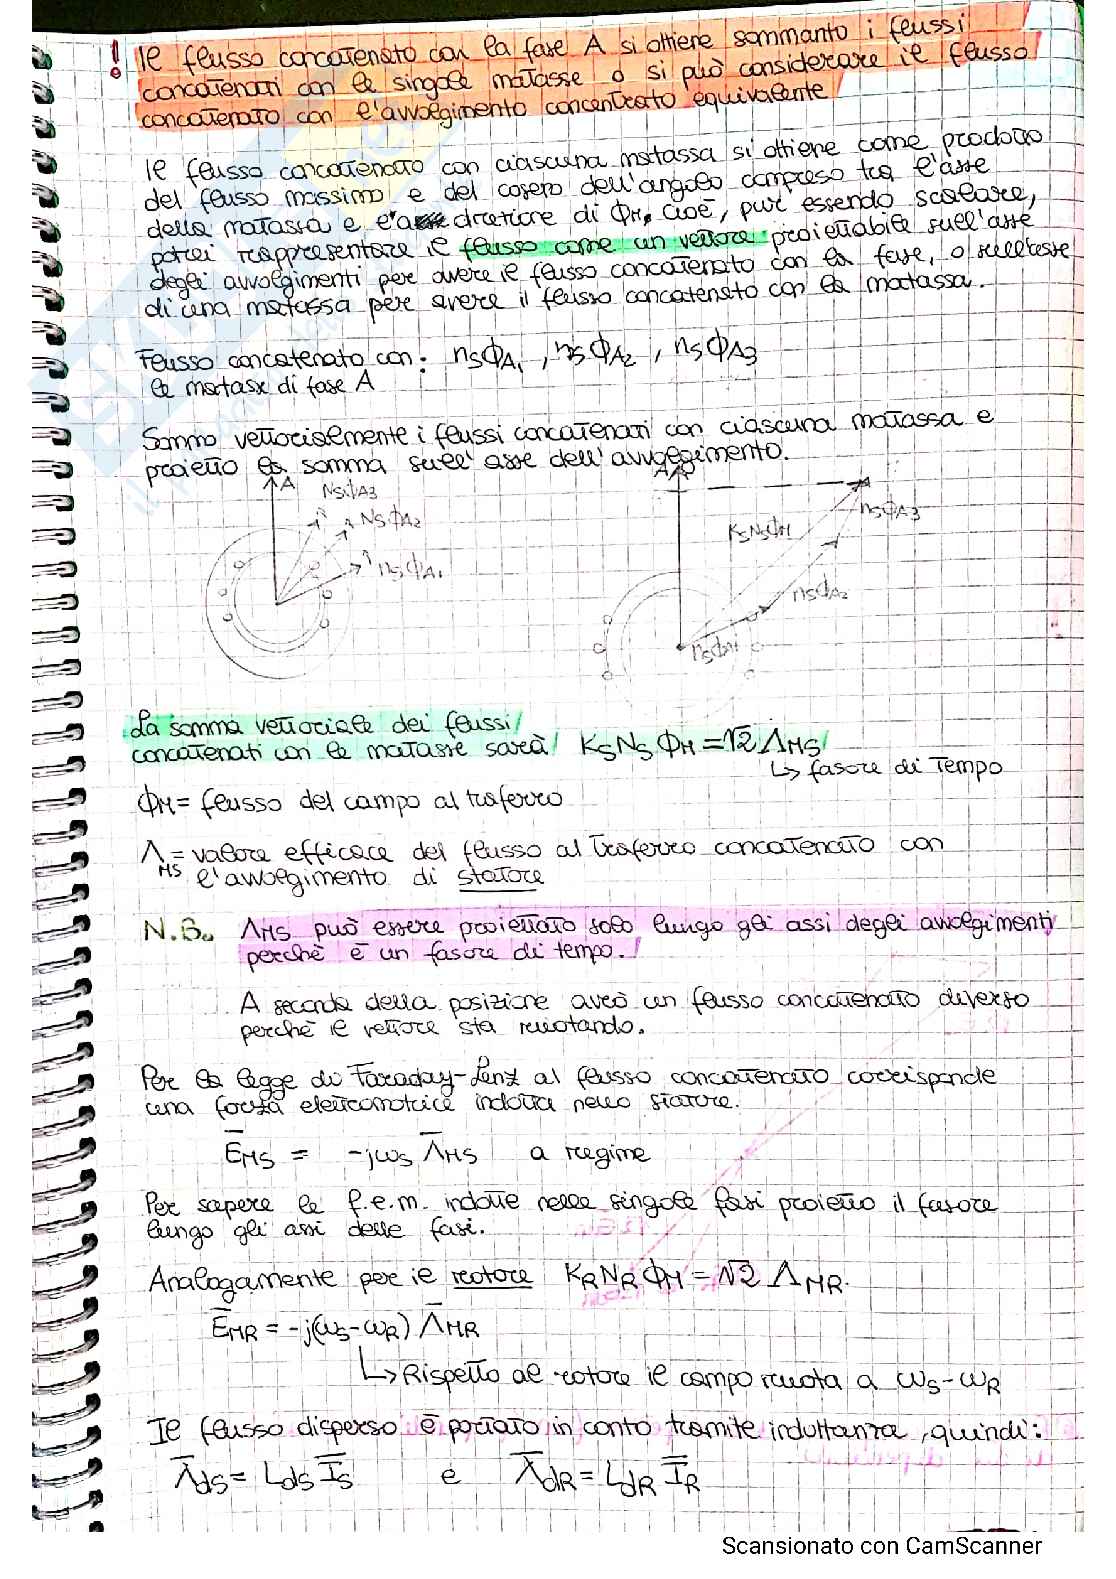 ! Il flusso concatenato con la fase A si ottiene sommanto i flussi
concatenati con le singole matasse o si può considerare il flusso
concatenato con l'avvolgimento concentrato equivalente
Il flusso concatenato con ciascuna matassa si ottiene come prodotto
del flusso massimo e del coseno dell'angolo compreso tra l'asse
della matassa e la direzione di ΦM, cioè, pur essendo scalare,
potrei rappresentare il flusso come un vettore proiettabile sull'asse
degli avvolgimenti per avere il flusso concatenato con la fase, o sull'asse
di una matassa per avere il flusso concatenato con la matassa.
Flusso concatenato con: nsΦA1, nsΦA2, nsΦA3
le matasse di fase A
Sommo vettorialmente i flussi concatenati con ciascuna matassa e
proietto la somma sull'asse dell'avvolgimento.
A
NsΦA3
NsΦA2
nsΦA1
A
nsΦA3
KsNsΦM
nsΦA2
nsΦA1
La somma vettoriale dei flussi
concatenati con le matasse sarà KsNsΦM = √2 ΛMS
↳ fasore di tempo
ΦM = flusso del campo al traferro
ΛMS = valore efficace del flusso al traferro concatenato con
l'avvolgimento di statore
N.B. ΛMS può essere proiettato solo lungo gli assi degli avvolgimenti
perchè è un fasore di tempo.
A seconda della posizione avrò un flusso concatenato diverso
perchè il vettore sta ruotando.
Per la legge di Faraday-Lenz al flusso concatenato corrisponde
una forza elettromotrice indotta nello statore.
E̅MS = -jωs Λ̅MS a regime
Per sapere le f.e.m. indotte nelle singole fasi proietto il fasore
lungo gli assi delle fasi.
Analogamente per il rotore KRNRΦM = √2 ΛMR.
E̅MR = -j(ωs-ωR) Λ̅MR
↳ Rispetto al rotore il campo ruota a ωs-ωR
Il flusso disperso è portato in conto tramite induttanza, quindi:
Λ̅ds = Lds I̅s e Λ̅dR = LdR I̅R
Scansionato con CamScanner